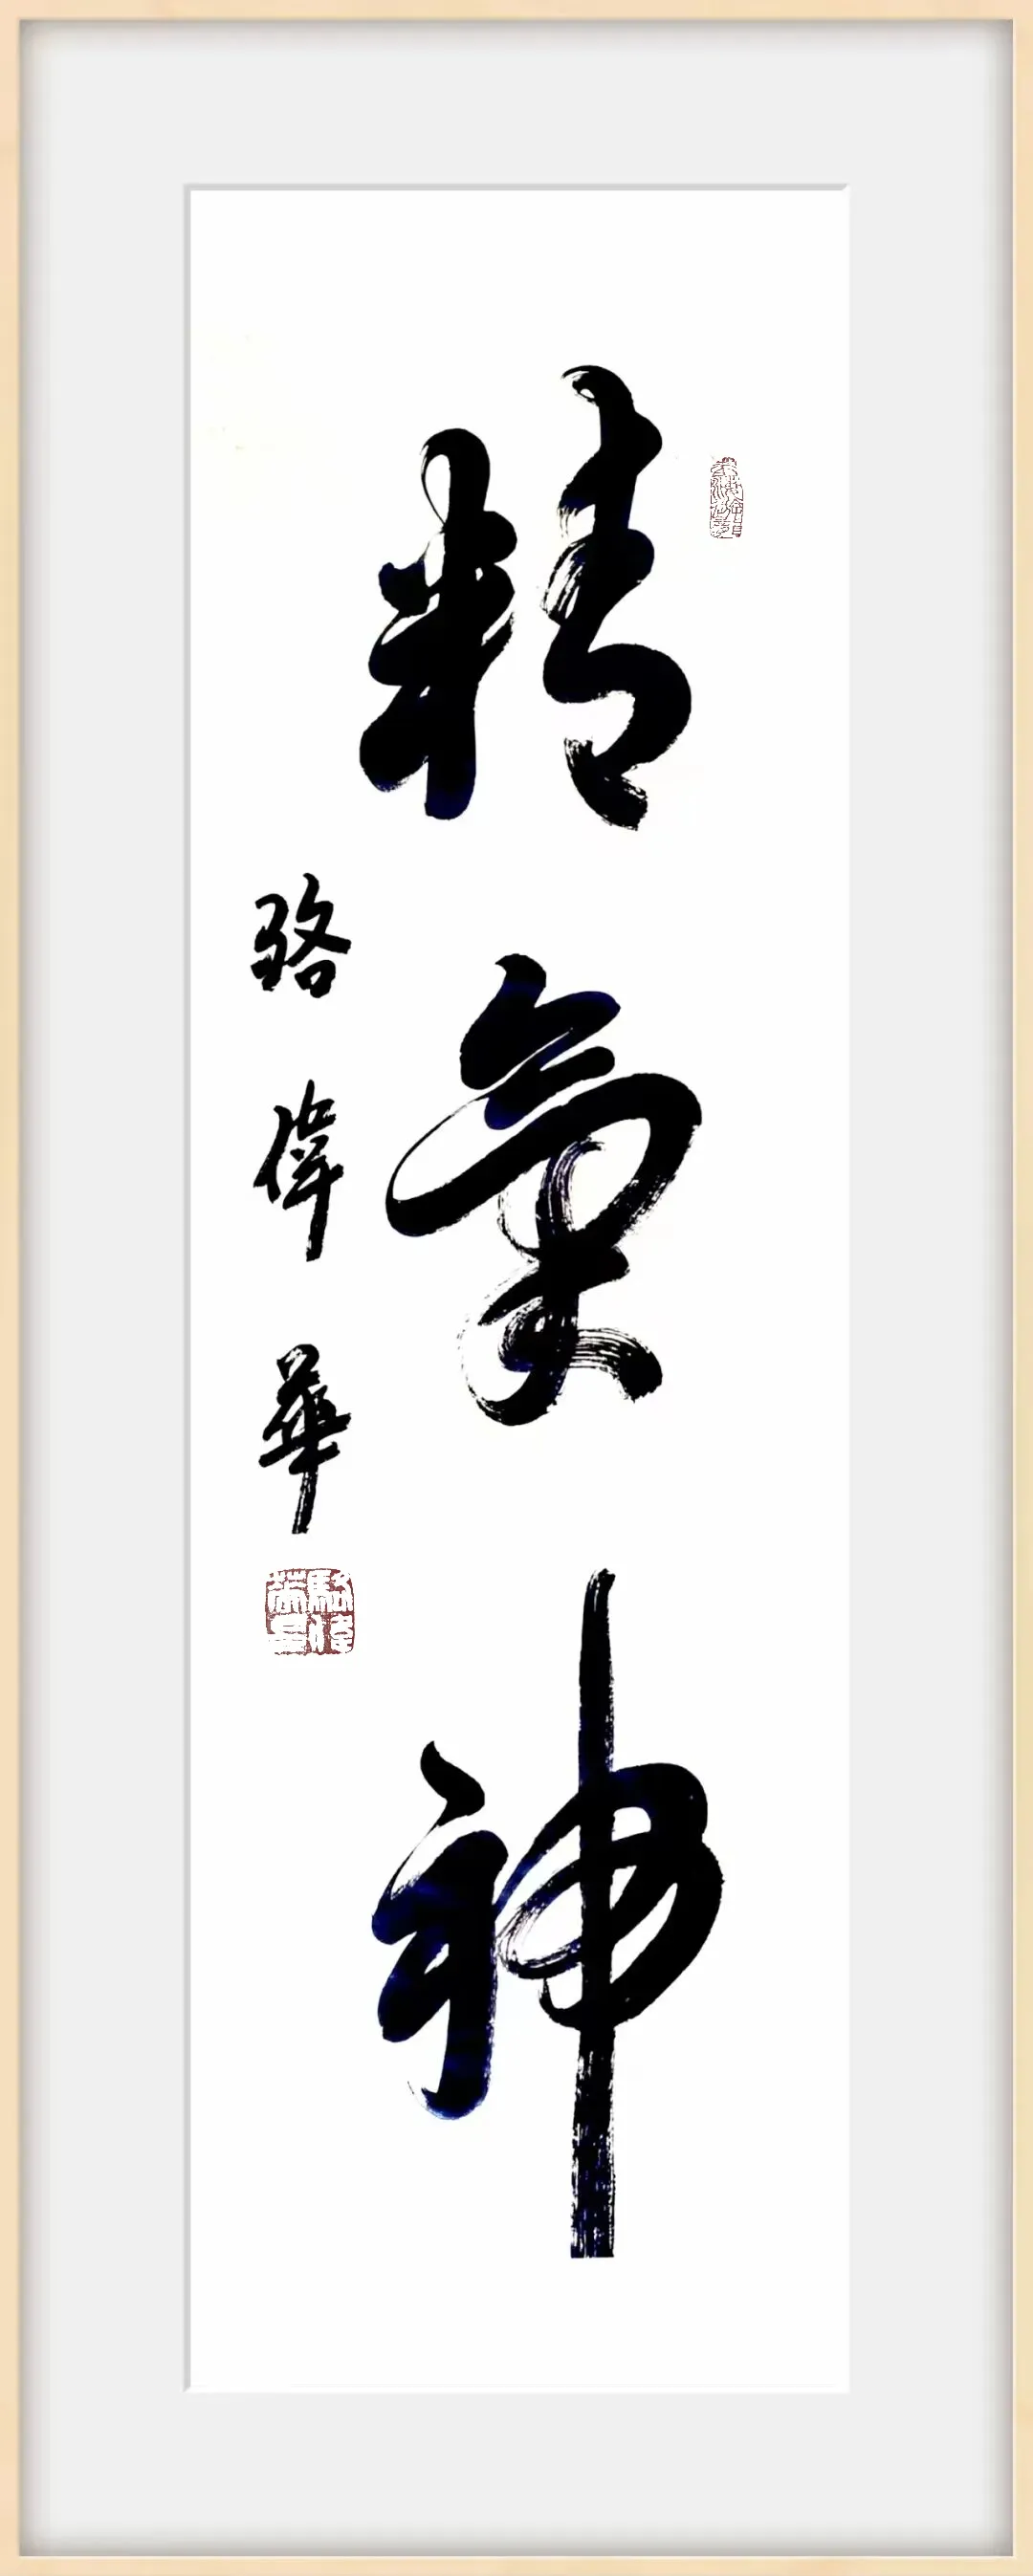 精氣神
骆偉華